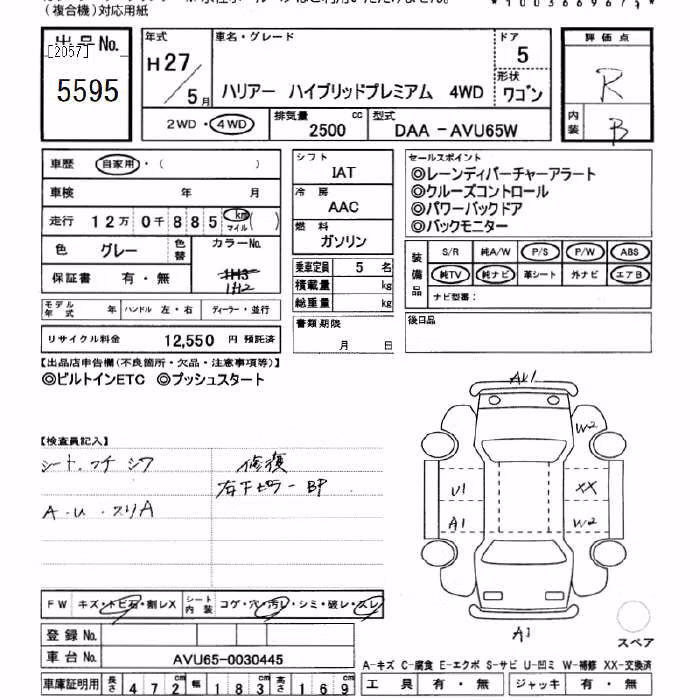 (複合機)対応用紙
出品No.
[2057]
5595
年式
H27/5月
車名・グレード
ハリアー ハイブリッドプレミアム 4WD
ドア
5
形状
ワゴン
2WD・4WD
排気量
2500 cc
型式
DAA-AVU65W
評価点
R
内装
B
車歴 自家用・( )
車検 年 月
走行 12万0千885 km マイル ( )
色 グレー 色替 カラーNo.
1H2
保証書 有・無
モデル年式 年 ハンドル 左・右 ディーラー・並行
リサイクル料金 12,550 円 預託済
シフト
IAT
冷房
AAC
燃料
ガソリン
乗車定員 5 名
積載量 kg
総重量 kg
書類期限
月 日
セールスポイント
◎レーンディパーチャーアラート
◎クルーズコントロール
◎パワーバックドア
◎バックモニター
装備品
S/R 純A/W P/S P/W ABS
純TV 純ナビ 革シート 外ナビ エアB
ナビ型番:
後日品
【出品店申告欄(不良箇所・欠品・注意事項等)】
◎ビルトインETC ◎プッシュスタート
【検査員記入】
シート.コゲ シワ 修復
右下ピラーBP
A.U.スリA
AU1
W2
U1
XX
A1
W2
A1
スペア
FW キズ・トビ石・割レX シート内装 コゲ・穴・汚レ・シミ・破レ・スレ
登録No.
車台No. AVU65-0030445
車庫証明用 長さ 472 cm 幅 183 cm 高さ 169 cm
A-キズ C-腐食 E-エクボ S-サビ U-凹ミ W-補修 XX-交換済
工具 有・無 ジャッキ 有・無